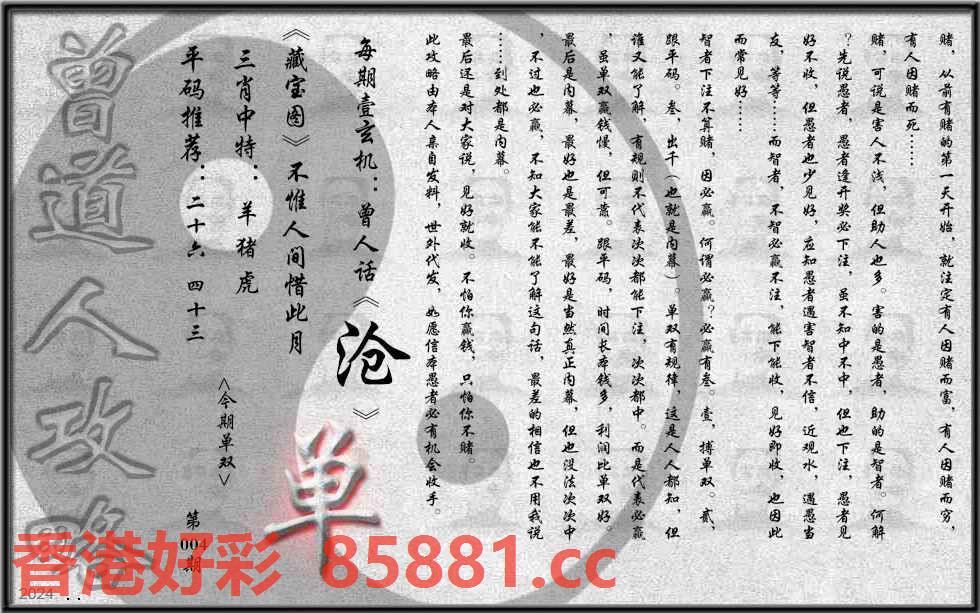 赌，从前有赌的第一天开始，就注定有人因赌而富，有人因赌而穷，
有人因赌而死……
赌，可说是害人不浅，但助人也多。害的是愚者，助的是智者。何解
？先说愚者，愚者逢开奖必下注，虽不知中不中，但也下注，愚者见
好不收，但愚者也少见好，应知愚者遇害智者不信，近观水，遇愚当
友，等等……而智者，不智必赢不注，能下能收，见好即收，也因此
而常见好……
智者下注不算赌，因必赢。何谓必赢？必赢有叁。壹，搏单双。贰，
跟平码。叁，出千（也就是内幕）。单双有规律，这是人人都知，但
谁又能了解，有规则不代表次次都能下注，次次都中。而是代表必赢
，虽单双赢钱慢，但可靠。跟平码，时间长本钱多，利润比单双好。
最后是内幕，最好也是最差，最好是当然真正内幕，但也没法次次中
，不过也必赢，不知大家能不能了解这句话，最差的相信也不用我说
……到处都是内幕。
最后还是对大家说，见好就收。不怕你赢钱，只怕你不赌。
此攻略由本人亲自发料，世外代发，如愿信本愚者必有机会收手。
每期壹玄机：曾人话《沧》
《藏宝图》不惟人间惜此月
三肖中特：羊猪虎
平码推荐：二十六 四十三
<今期单双>
单
第
004
期
曾道人攻略
香港好彩 85881.cc
2024